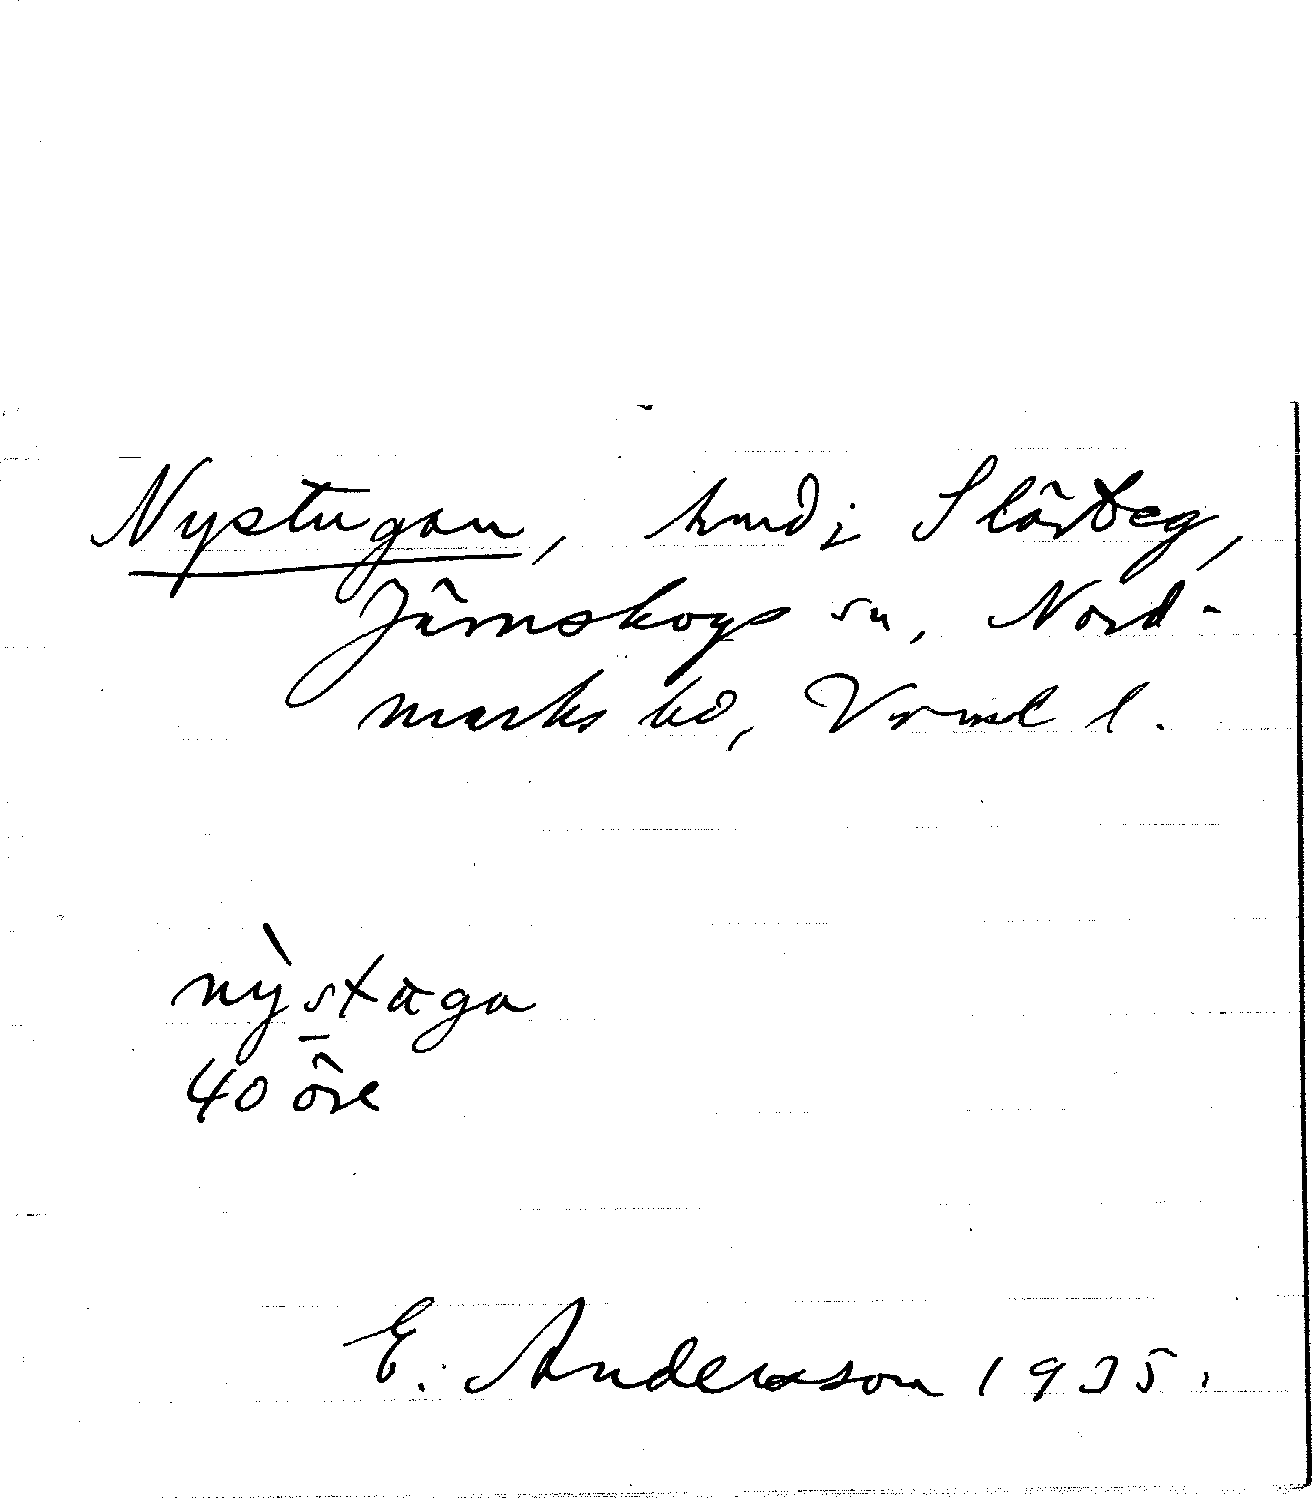 Nystugan, hmd i Slärteg,
Järnskogs sn, Nord-
marks hd, Vrml l.
nỳstaga
40 öre
E. Andersson 1935.